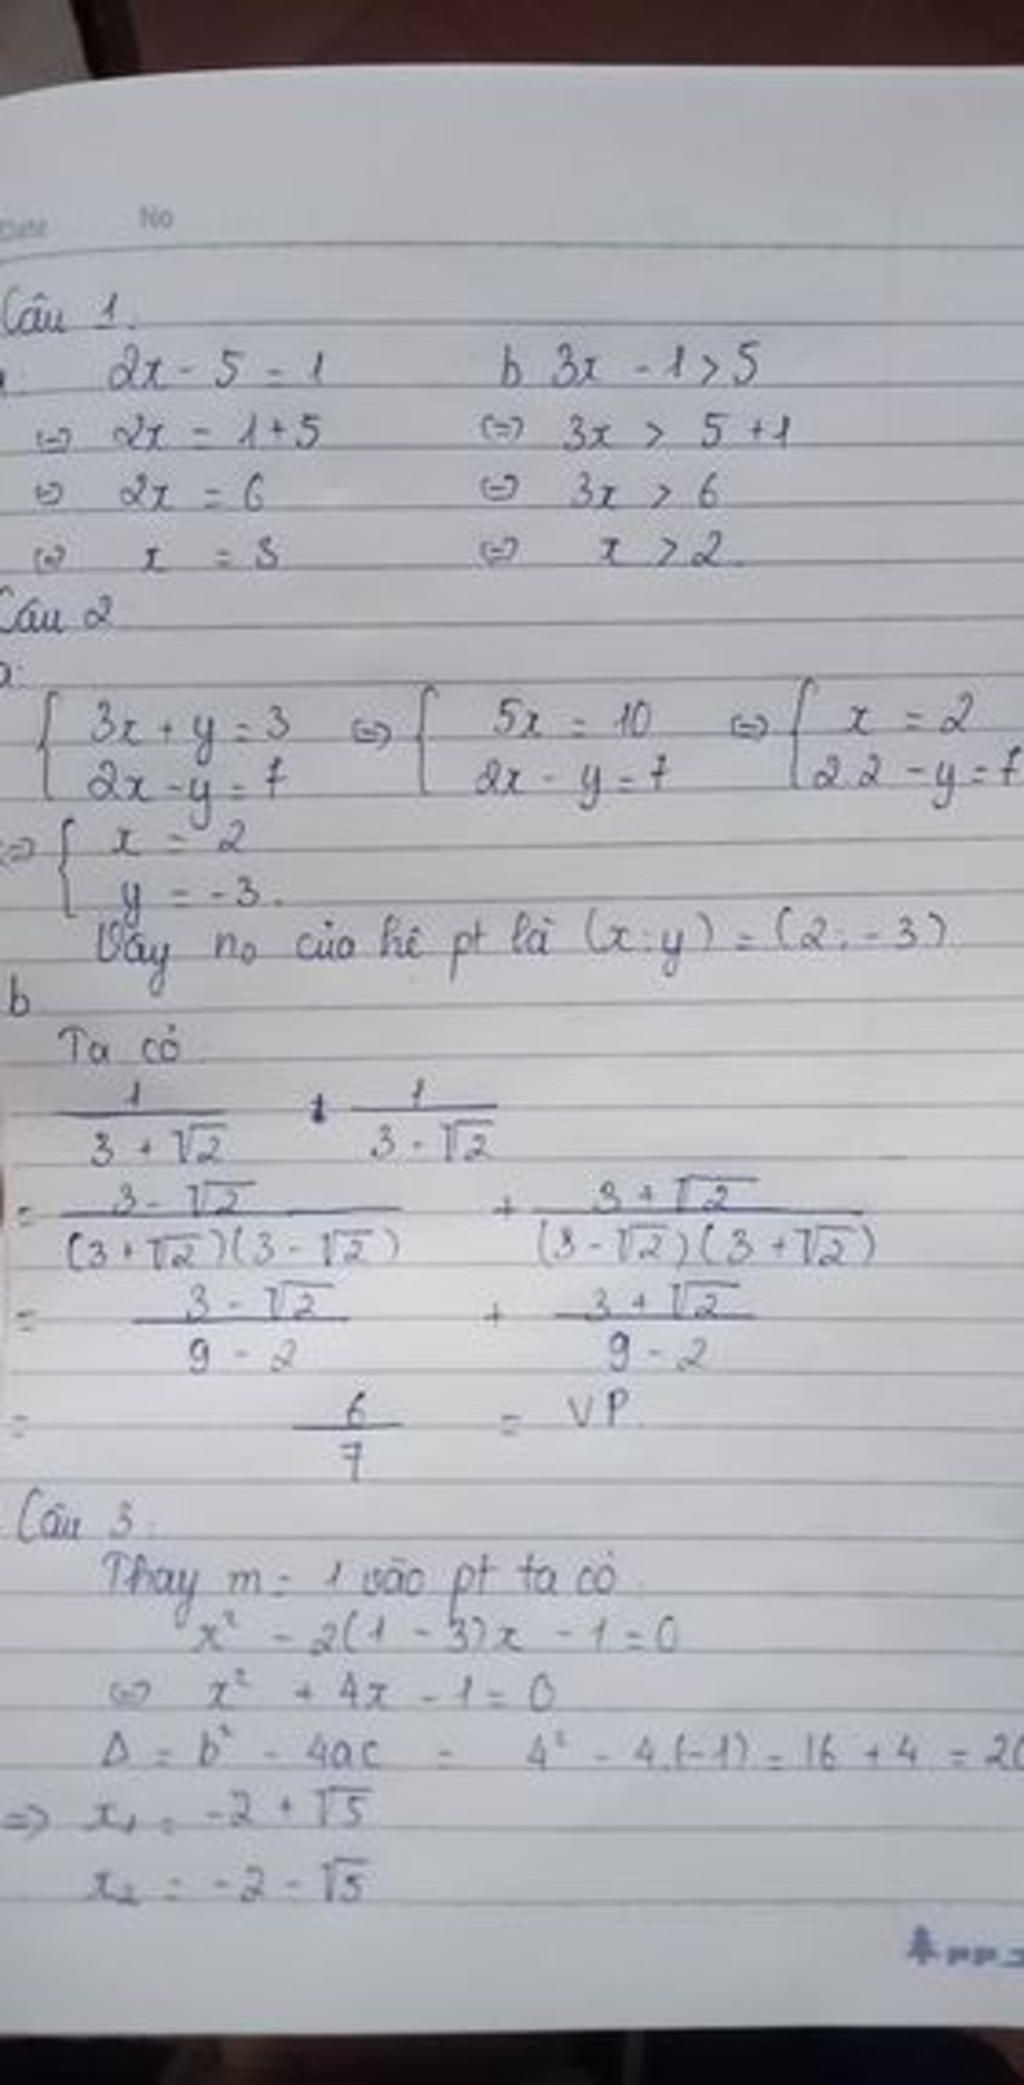 Date No
Câu 1.
2x - 5 = 1 b 3x - 1 > 5
⇔ 2x = 1+5 ⇔ 3x > 5 +1
⇔ 2x = 6 ⇔ 3x > 6
⇔ x = 3 ⇔ x > 2.
Câu 2
a.
{ 3x + y = 3 ⇔ { 5x = 10 ⇔ { x = 2
2x - y = 7 2x - y = 7 2.2 - y = 7
⇔ { x = 2
y = -3.
Vậy no của hệ pt là (x;y) = (2;-3)
b
Ta có
1/(3 + √2) + 1/(3 - √2)
= (3 - √2)/((3+√2)(3-√2)) + (3+√2)/((3-√2)(3+√2))
= (3 - √2)/(9 - 2) + (3+√2)/(9 - 2)
= 6/7 = VP.
Câu 3.
Thay m = 1 vào pt ta có
x² - 2(1 - 3)x - 1 = 0
⇔ x² + 4x - 1 = 0
Δ = b² - 4ac = 4² - 4.(-1) = 16 + 4 = 20
⇒ x₁ = -2 + √5
x₂ = -2 - √5